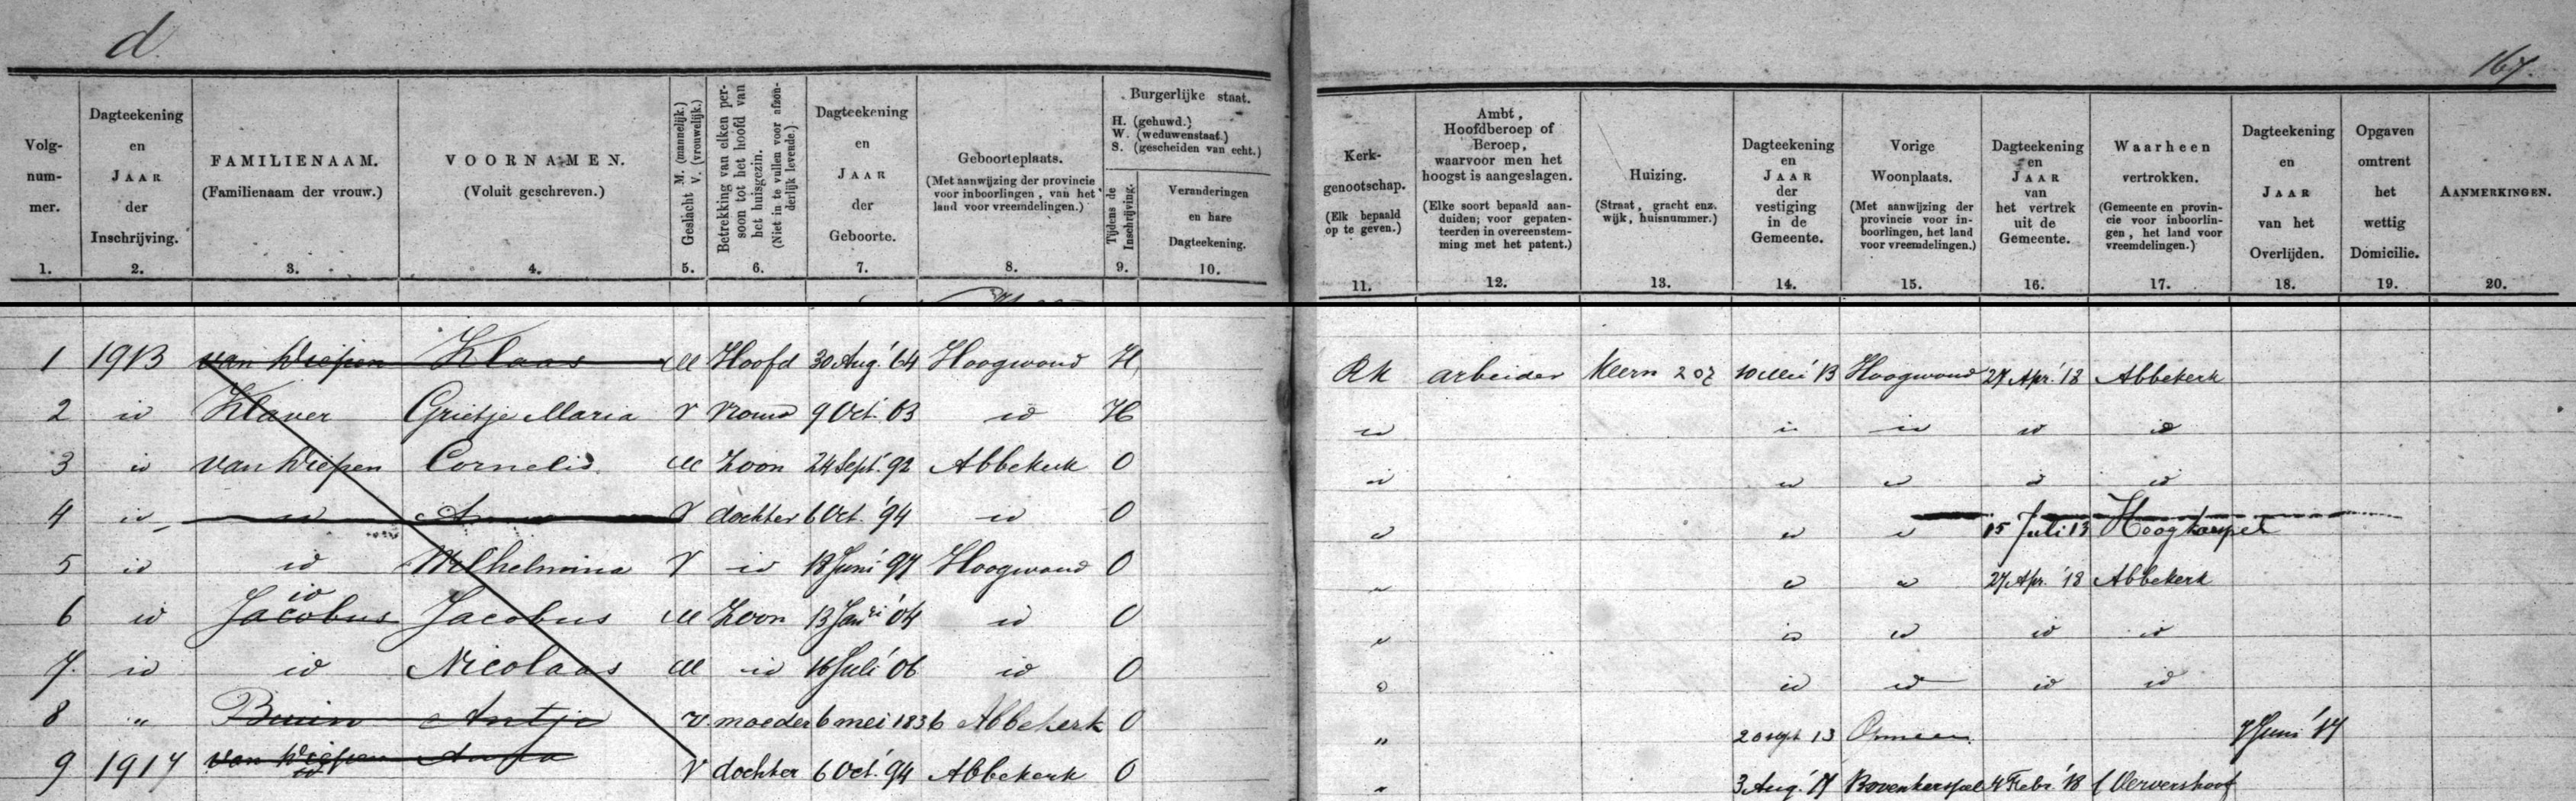 d.
167.
Volg-
num-
mer.
1.
Dagteekening
en
JAAR
der
Inschrijving.
2.
FAMILIENAAM.
(Familienaam der vrouw.)
3.
VOORNAMEN.
(Voluit geschreven.)
4.
Geslacht M. (mannelijk.)
V. (vrouwelijk.)
5.
Betrekking van elken per-
soon tot het hoofd van
het huisgezin.
(Niet in te vullen voor afzon-
derlijk levende.)
6.
Dagteekening
en
JAAR
der
Geboorte.
7.
Geboorteplaats.
(Met aanwijzing der provincie
voor inboorlingen, van het
land voor vreemdelingen.)
8.
Burgerlijke staat.
H. (gehuwd.)
W. (weduwenstaat.)
S. (gescheiden van echt.)
Tijdens de
Inschrijving.
9.
Veranderingen
en hare
Dagteekening.
10.
Kerk-
genootschap.
(Elk bepaald
op te geven.)
11.
Ambt,
Hoofdberoep of
Beroep,
waarvoor men het
hoogst is aangeslagen.
(Elke soort bepaald aan-
duiden; voor gepaten-
teerden in overeenstem-
ming met het patent.)
12.
Huizing.
(Straat, gracht enz.
wijk, huisnummer.)
13.
Dagteekening
en
JAAR
der
vestiging
in de
Gemeente.
14.
Vorige
Woonplaats.
(Met aanwijzing der
provincie voor in-
boorlingen, het land
voor vreemdelingen.)
15.
Dagteekening
en
JAAR
van
het vertrek
uit de
Gemeente.
16.
Waarheen
vertrokken.
(Gemeente en provin-
cie voor inboorlin-
gen, het land voor
vreemdelingen.)
17.
Dagteekening
en
JAAR
van het
Overlijden.
18.
Opgaven
omtrent
het
wettig
Domicilie.
19.
AANMERKINGEN.
20.
1 1913 van Diepen Klaas M Hoofd 30 Aug. '64 Hoogwoud H RK arbeider Keern 207 10 Mei '13 Hoogwoud 27 Apr. '18 Abbekerk
2 id Klaver Grietje Maria V Vrouw 9 Oct. 63 id H id id id id id
3 id van Diepen Cornelis M Zoon 24 Sept. '92 Abbekerk O id id id id id
4 id id Anna V dochter 6 Oct. '94 id O id id id 15 Juli 13 Hoogkarspel
5 id id Wilhelmina V id 18 Juni '97 Hoogwoud O " id id 27 Apr. '18 Abbekerk
id
6 id Jacobus Jacobus M Zoon 13 Janri '04 id O " id id id id
7. id id Nicolaas M id 16 Juli '06 id O id id id id id
8 " Bruin Antje v. moeder 6 mei 1836 Abbekerk O " 20 sept 13 Opmeer 7 Juni '17
9 1917 van Diepen Anna V dochter 6 Oct. '94 Abbekerk O " 3 Aug. '17 Bovenkarspel 4 Febr. '18 Wervershoof
id